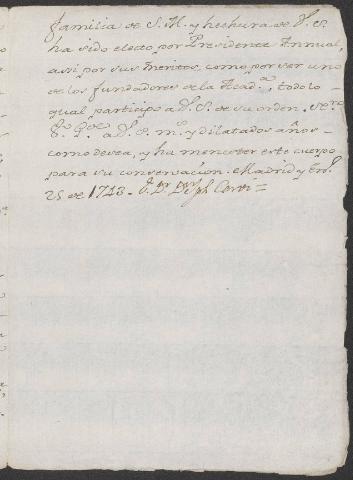 familia de S. M. y hechura de V. S.
ha sido electo por Presidente Annual,
assi por sus meritos, como por ser uno
de los fundadores de la Acad.ª, todo lo
qual participo a V. S. de su orden.
a V. S. m.s y dilatados años
como desea, y ha menester este cuerpo
para su conservacion. Madrid y En.º
25 de 1743. D.r D.n Jph